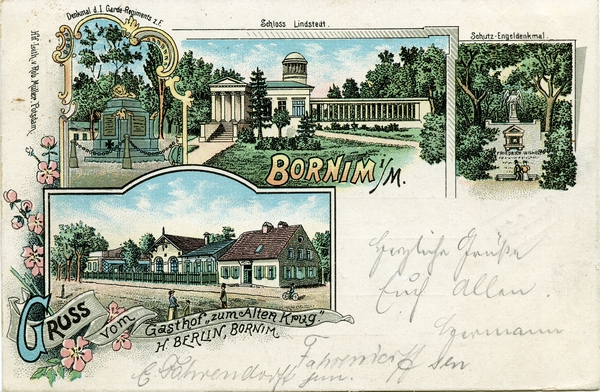 Denkmal d. I. Garde-Regiments z. F.
Schloss Lindstedt.
Schutz-Engeldenkmal.
BORNIM i/M.
GRUSS vom
Gasthof „zum Alten Krug"
H. BERLIN, BORNIM.
Herzliche Grüße
Euch Allen.
Hermann
Fahrendorff sen.
E. Fährendorff jun.